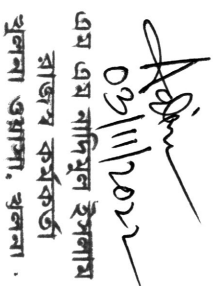 03/11/2022
এম এম নাদিমুল ইসলাম
রাজস্ব কর্মকর্তা
খুলনা ওয়াসা, খুলনা।